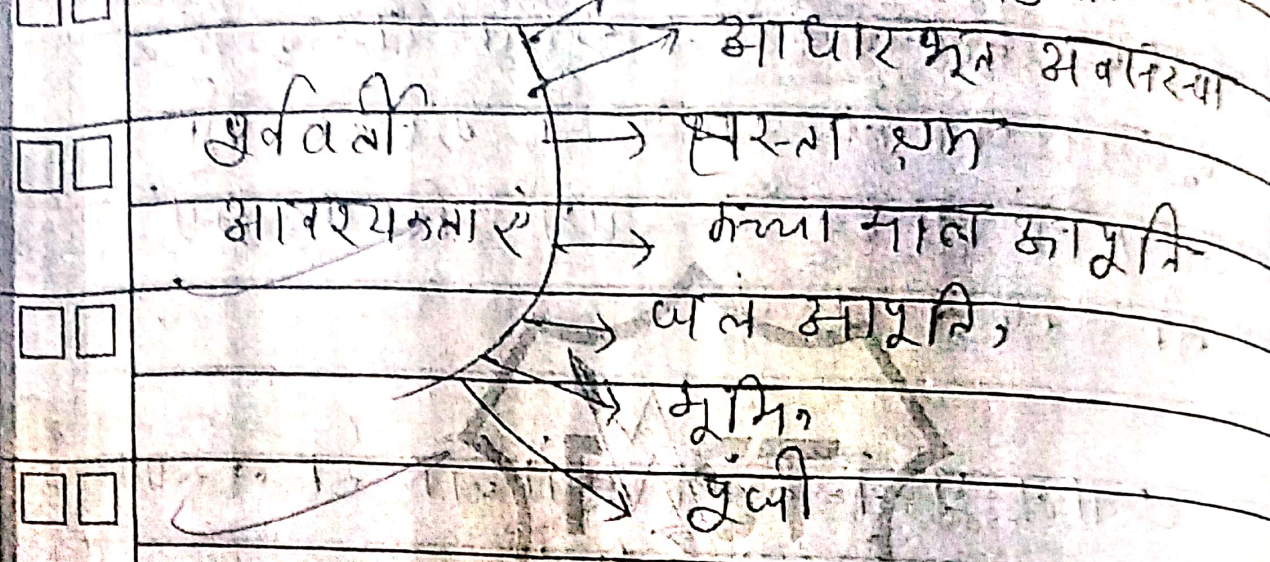 आधारभूत अवसंरचना
पूर्ववर्ती → सस्ता श्रम
आवश्यकताएं → कच्चा माल आपूर्ति
→ जल आपूर्ति,
भूमि,
पूंजी